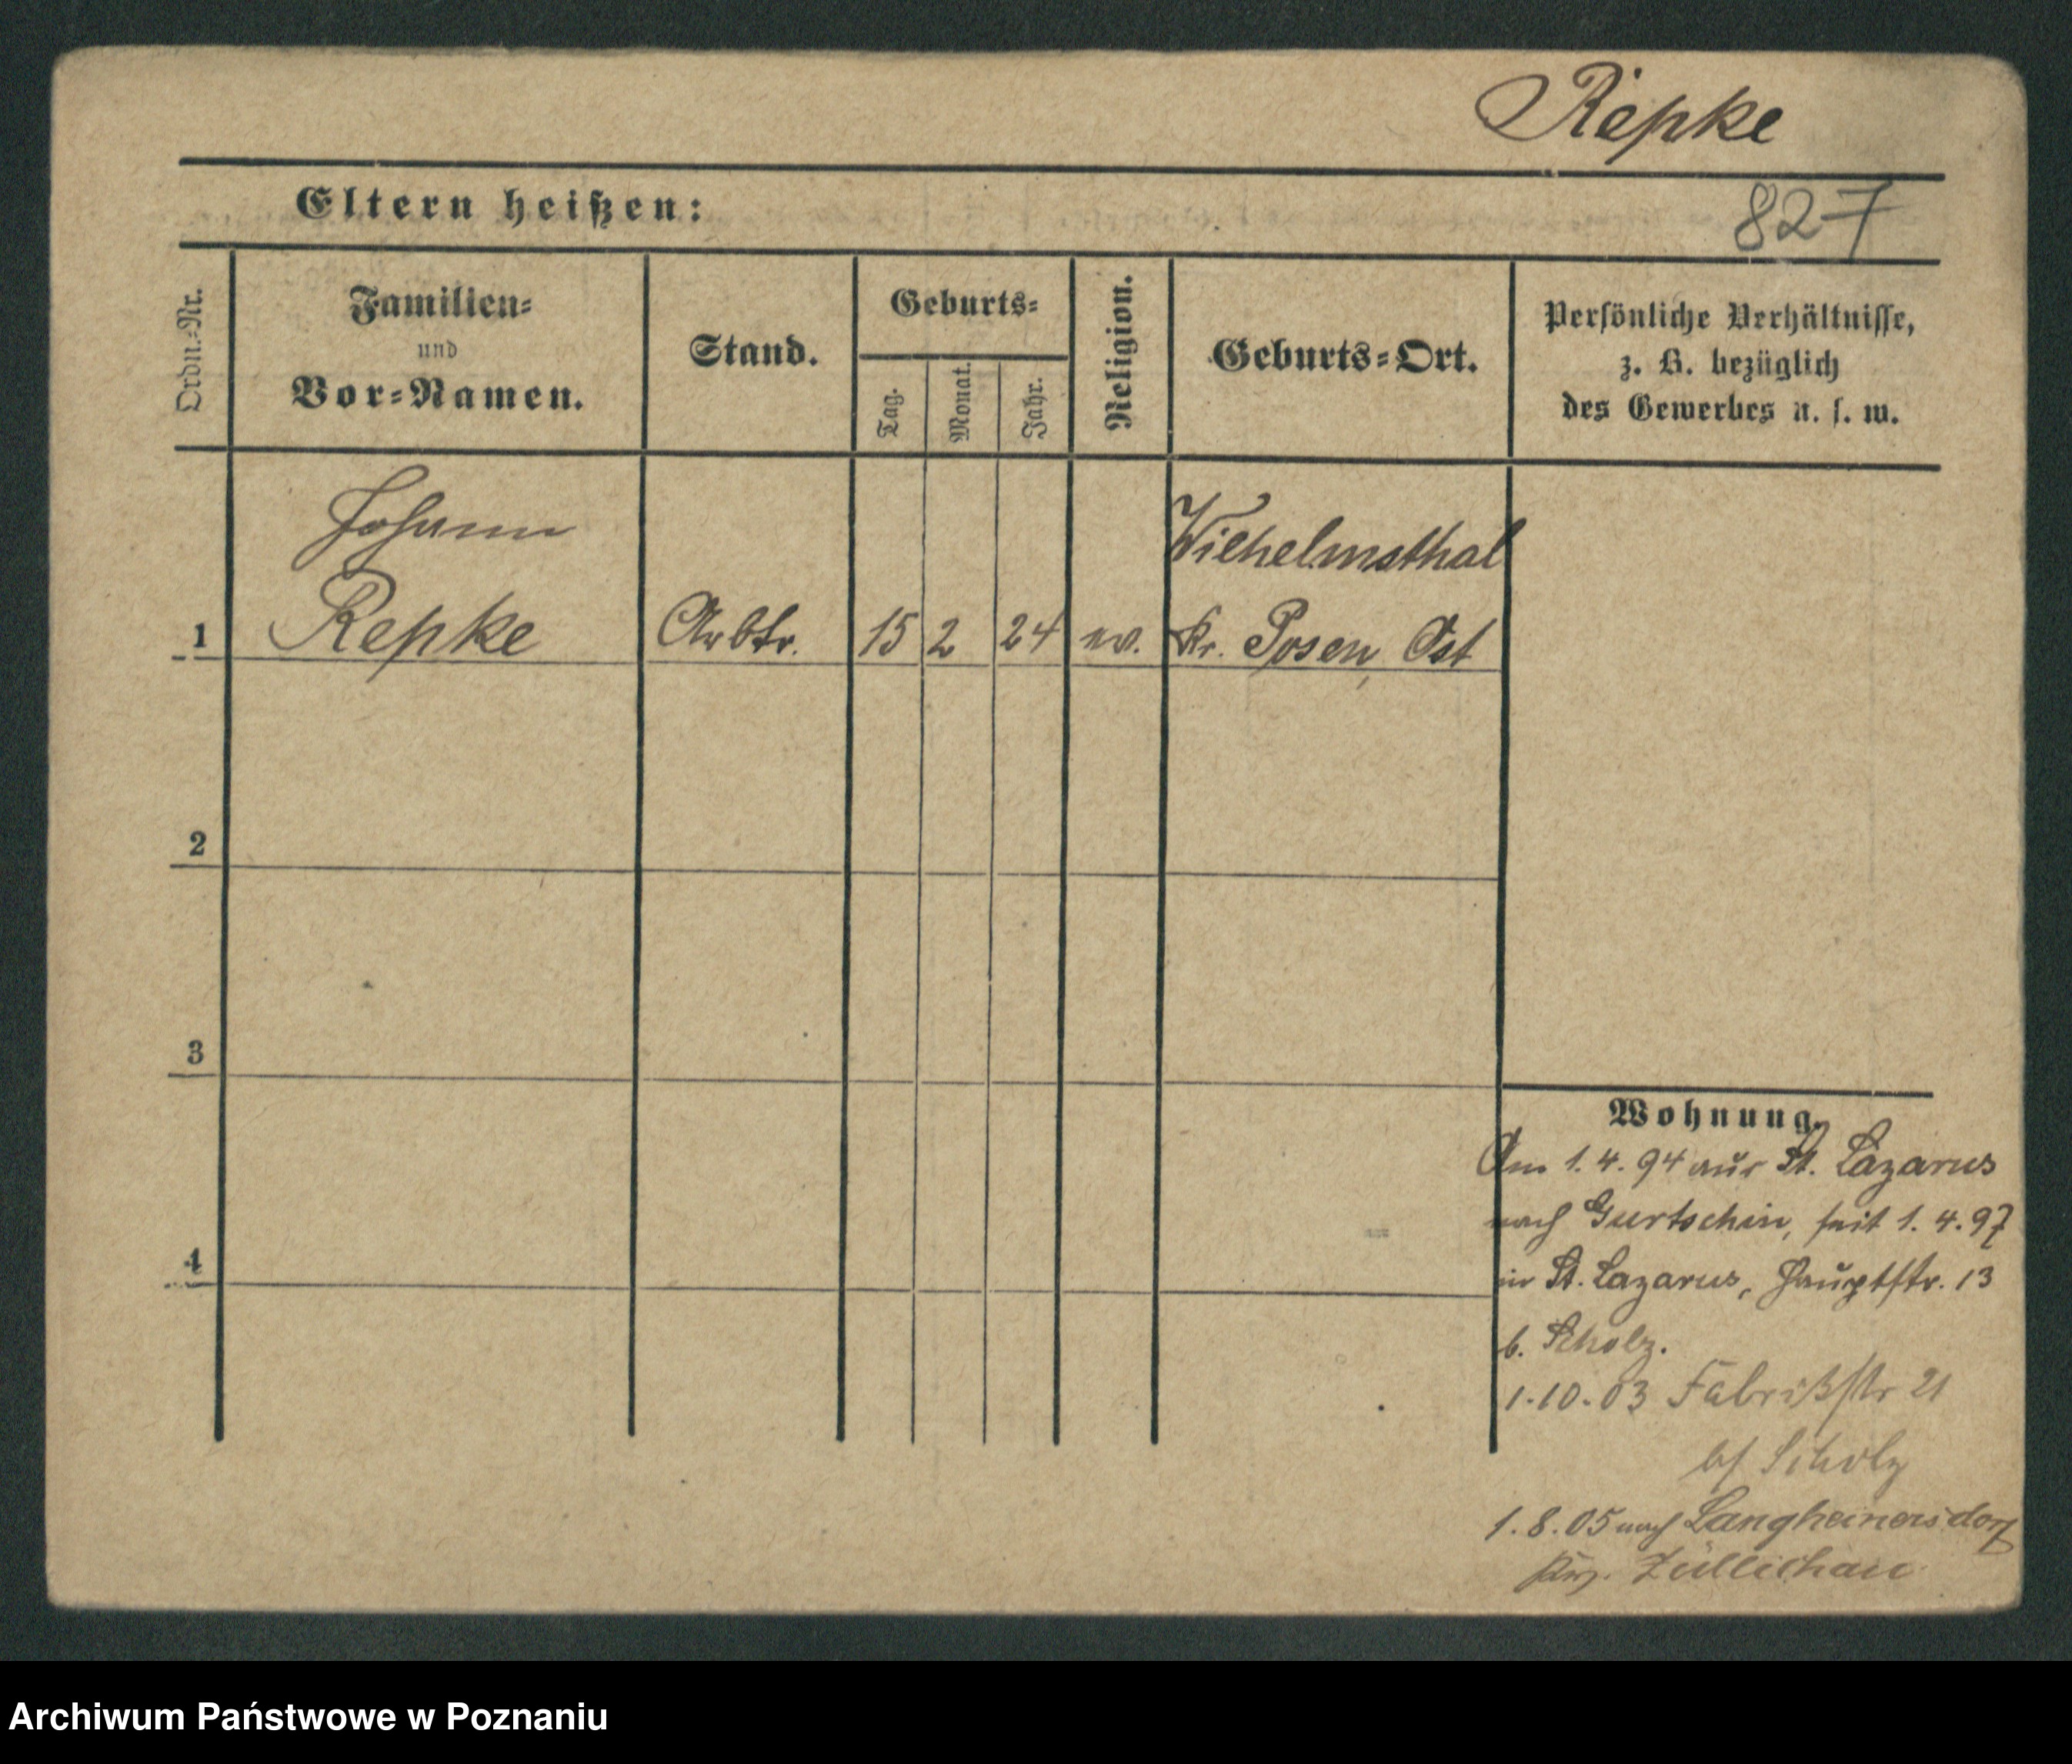 Repke
Eltern heißen:
827
Ordn.-Nr.
Familien-
und
Vor-Namen.
Stand.
Geburts-
Tag.
Monat.
Jahr.
Religion.
Geburts-Ort.
Persönliche Verhältnisse,
z. B. bezüglich
des Gewerbes u. s. w.
Johann
Wilhelmsthal
1 Repke Arbtr. 15 2 24 ev. Kr. Posen, Ost
2
3
4
Wohnung.
Am 1. 4. 94 aus St. Lazarus
nach Gurtschin, seit 1. 4. 97
in St. Lazarus, Hauptstr. 13
b. Scholz.
1.10.03 Fabrikstr 21
b/ Scholz
1. 8. 05 nach Langheinersdorf
Krs. Züllichau
Archiwum Państwowe w Poznaniu